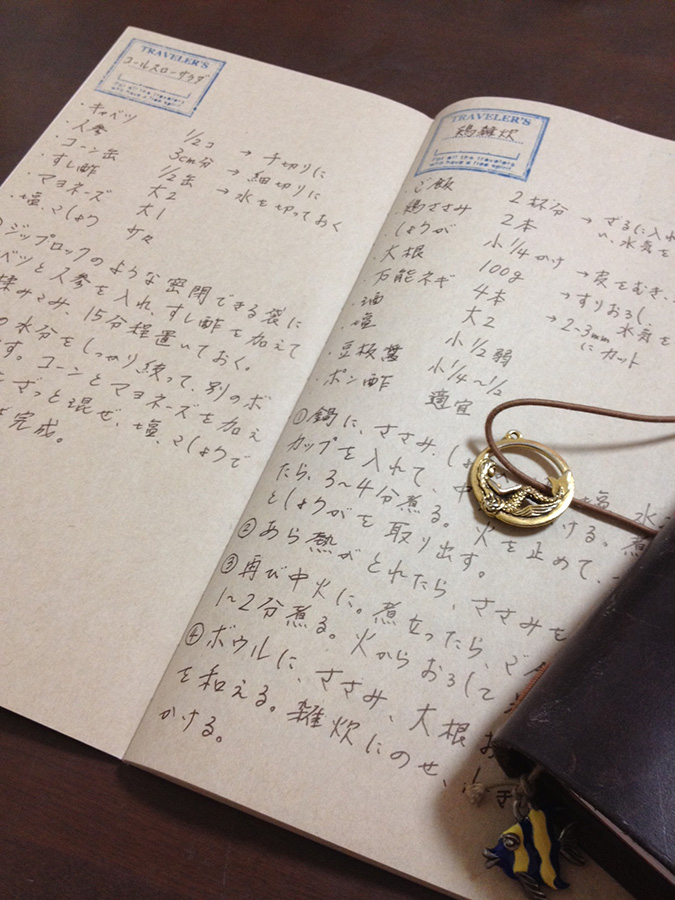 TRAVELER'S
コールスローサラダ
For all the travelers
who have a free spirit
・キャベツ 1/2コ → 千切りに
・人参 3cm分 → 細切りに
・コーン缶 1/2缶 → 水を切っておく
・すし酢 大2
・マヨネーズ 大1
・塩、こしょう 少々
ジップロックのような密閉できる袋に
ベツと人参を入れ、すし酢を加えて
揉みこみ、15分程置いておく。
の水分をしっかり絞って、別のボ
す。コーンとマヨネーズを加え
ざっと混ぜ、塩、こしょうで
完成。
TRAVELER'S
鶏雑炊
For all the travelers
who have a free spirit
・ご飯 2杯分 → ざるに入れ
い、水気を
・鶏ささみ 2本
・しょうが 小1/4かけ → 皮をむき、
・大根 100g → すりおろし、
水気を
・万能ネギ 4本 → 2~3mm
にカット
・酒 大2
・塩 小1/2弱
・豆板醤 小1/4~1/2
・ポン酢 適宜
①鍋に、ささみ、しょ 塩、水
カップを入れて、中 ける。煮
たら、3~4分煮る。火を止めて、
としょうがを取り出す。
②あら熱がとれたら、ささみを
③再び中火に。煮立ったら、ご
1~2分煮る。火からおろして
④ボウルに、ささみ、大根お
を和える。雑炊にのせ、
かける。